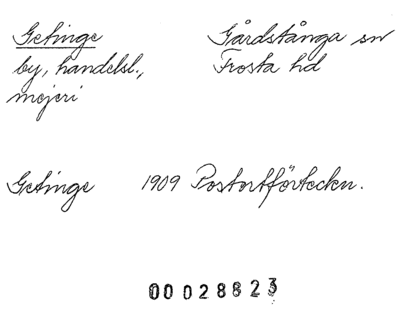 Getinge Gårdstånga sn
by, handelsl., Frosta hd
mejeri
Getinge 1909 Postortförteckn.
00028823